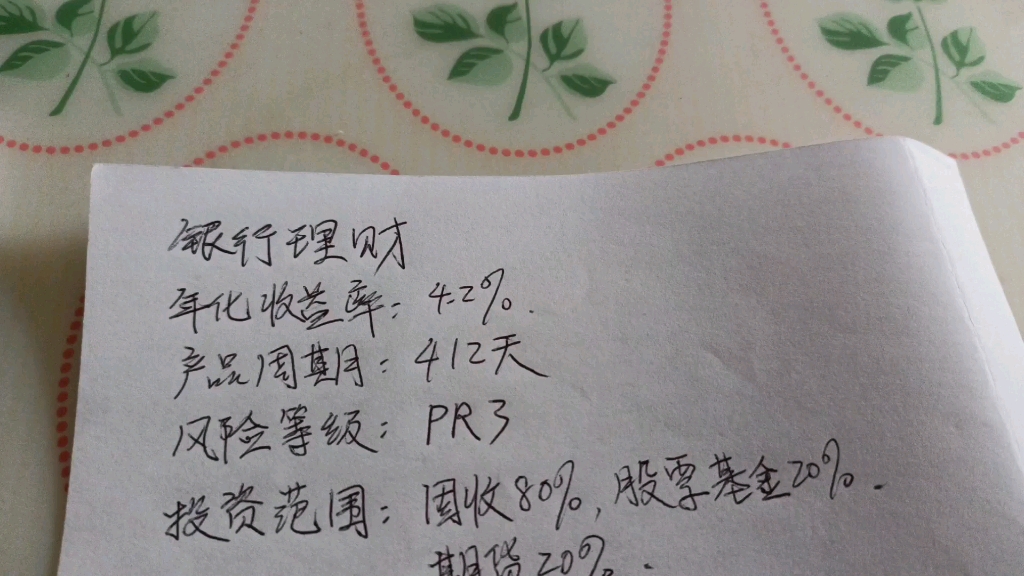 银行理财
年化收益率: 4.2%.
产品周期: 412天
风险等级: PR3
投资范围: 固收80%, 股票基金20%.
期货20%.